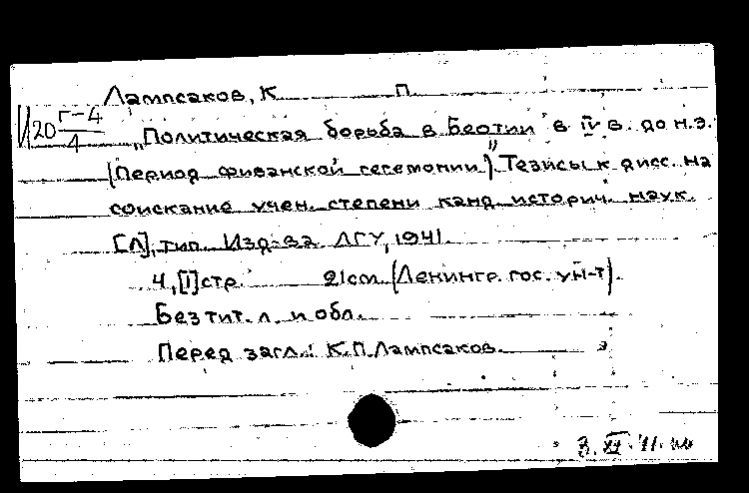 Лампсаков, К. П.
20 Г-4/4
„Политическая борьба в Беотии в IV в. до н.э.
(Период фиванской гегемонии)". Тезисы к дисс. на
соискание учен. степени канд. историч. наук.
[Л], тип. Изд-ва ЛГУ, 1941.
4, [1] стр. 21 см. (Ленингр. гос. ун-т).
Без тит. л. и обл.
Перед загл.: К.П. Лампсаков.